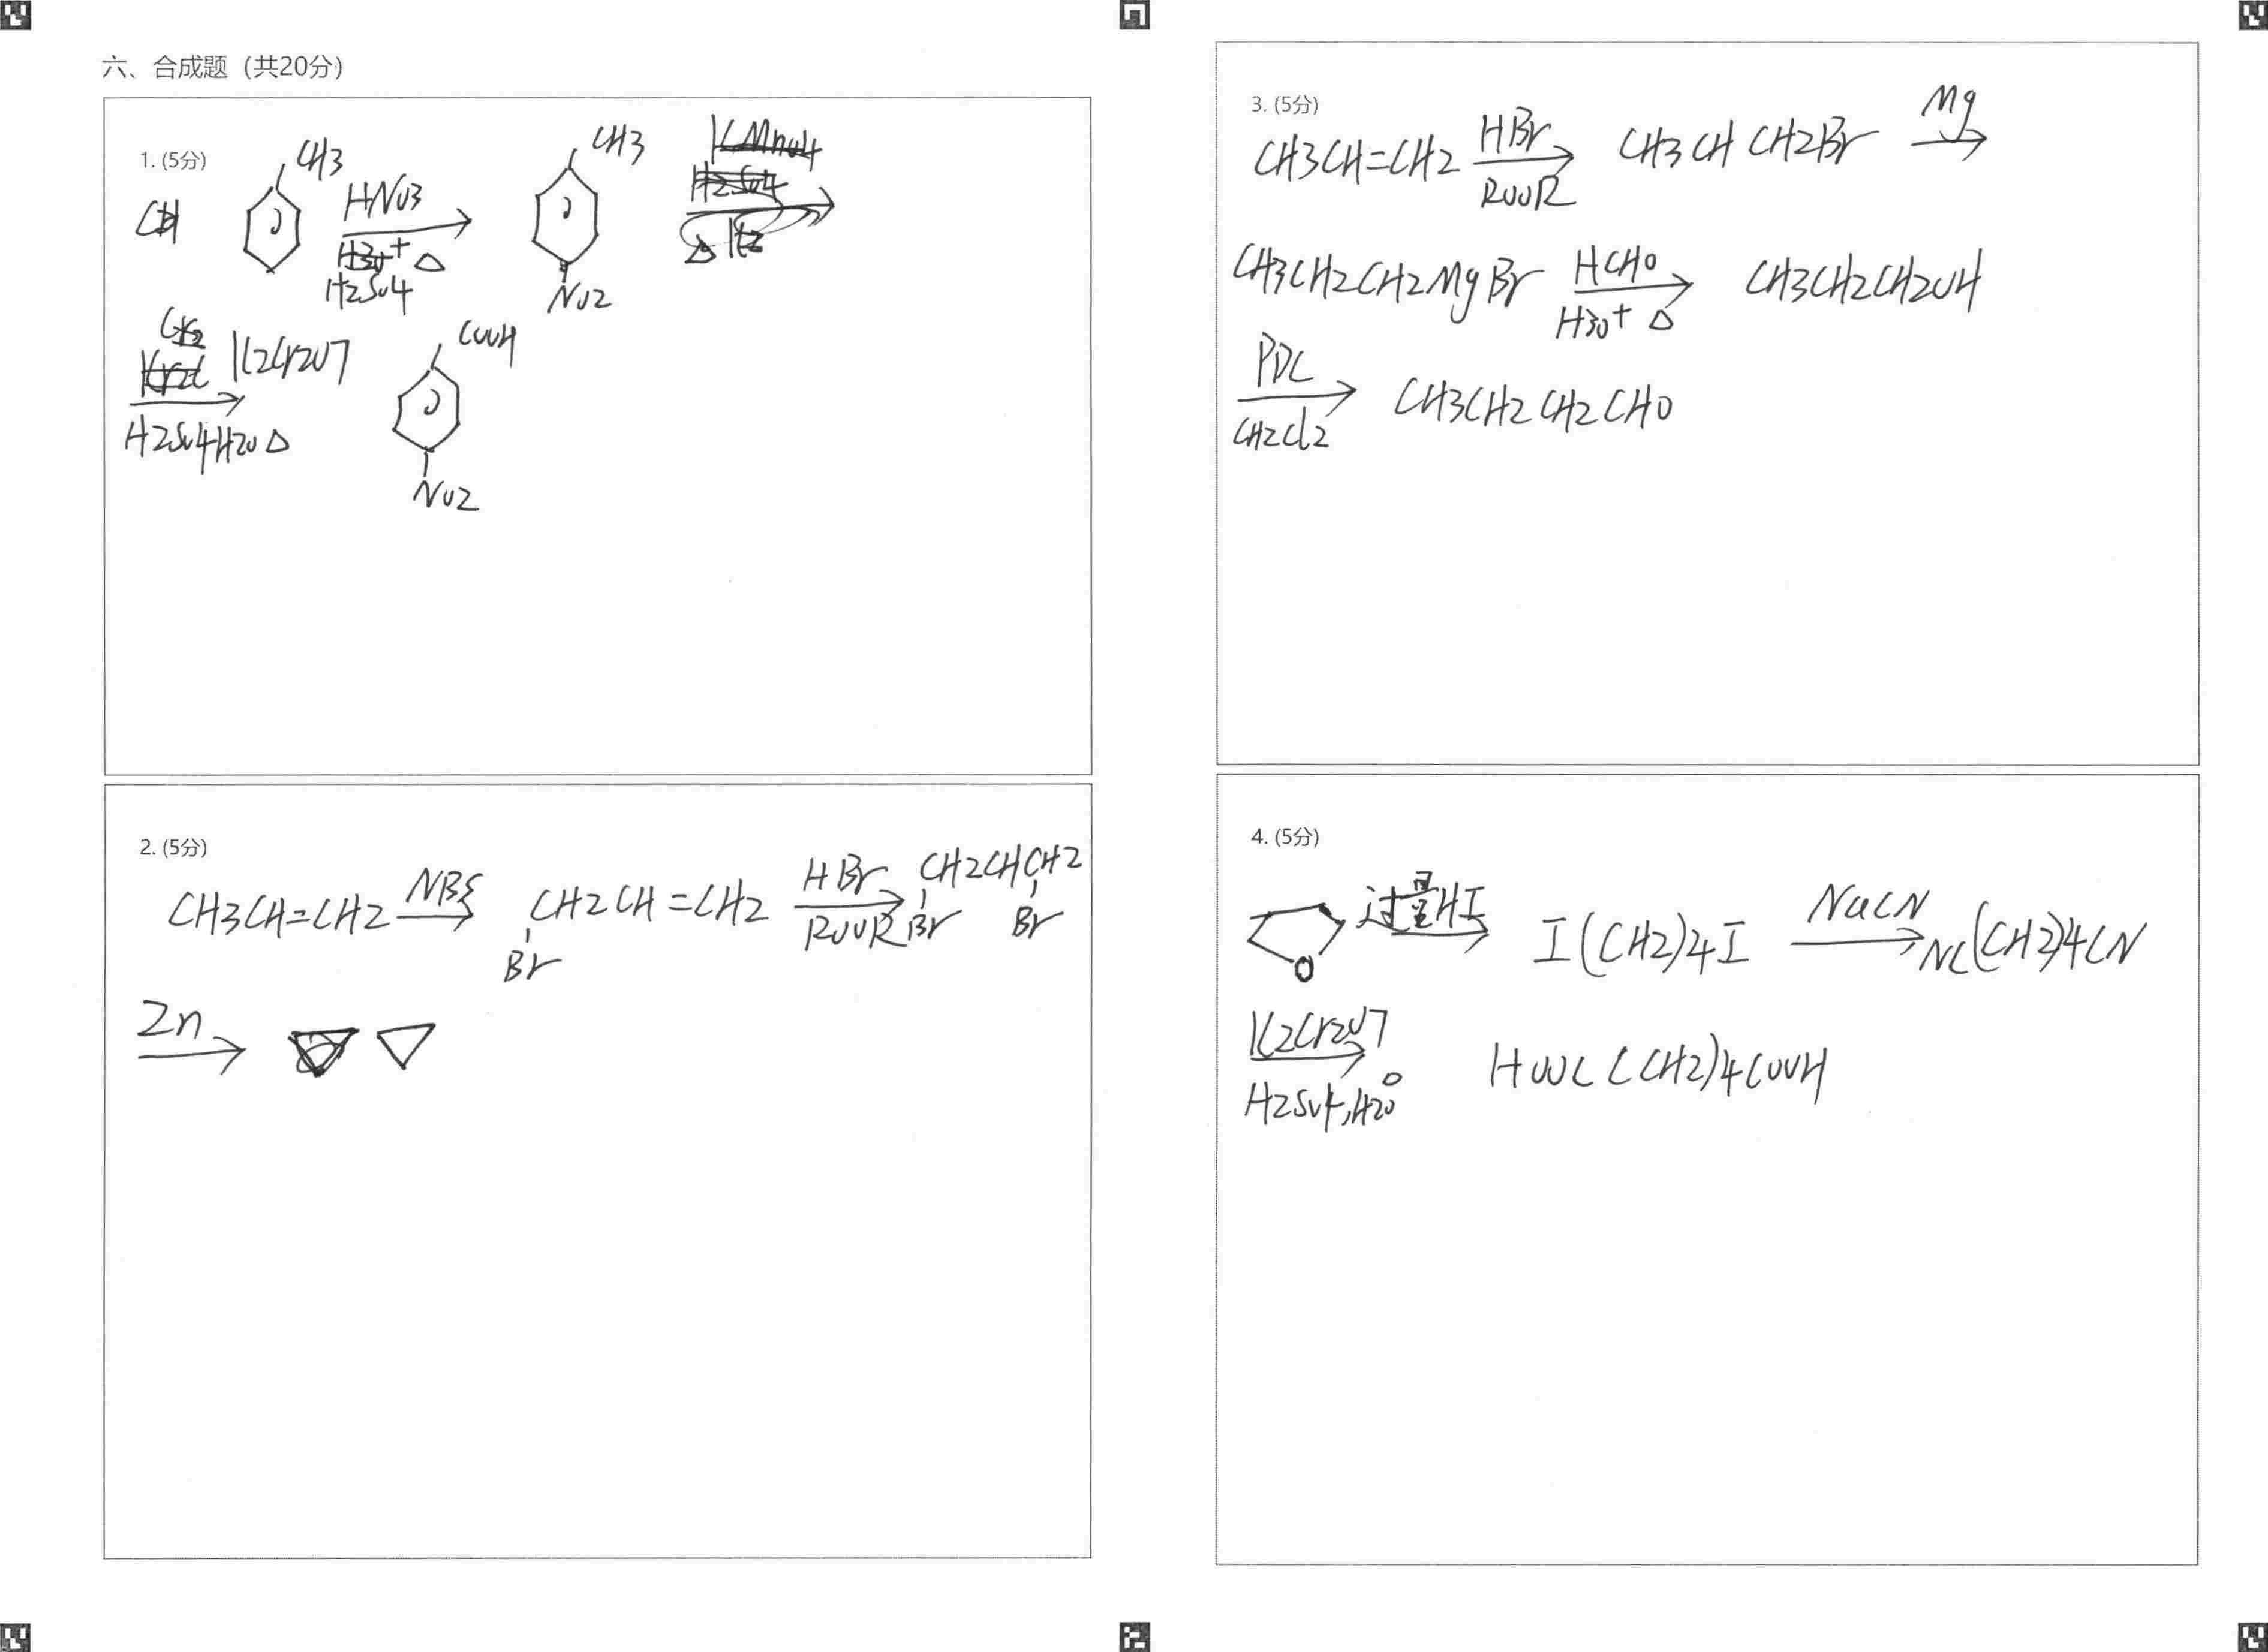 六、合成题（共20分）
1. (5分)
CH3 CH3
HNO3
H2SO4 △
NO2
K2Cr2O7 COOH
H2SO4 H2O △
NO2
2. (5分)
CH3CH=CH2 NBS CH2CH=CH2 HBr CH2CHCH2
Br ROOR Br Br
Zn
3. (5分)
CH3CH=CH2 HBr CH3CH CH2Br Mg
ROOR
CH3CH2CH2MgBr HCHO CH3CH2CH2OH
H3O+ △
PDC CH3CH2CH2CHO
CH2Cl2
4. (5分)
O 过量HI I(CH2)4I NaCN NC(CH2)4CN
K2Cr2O7 HOOC(CH2)4COOH
H2SO4,H2O